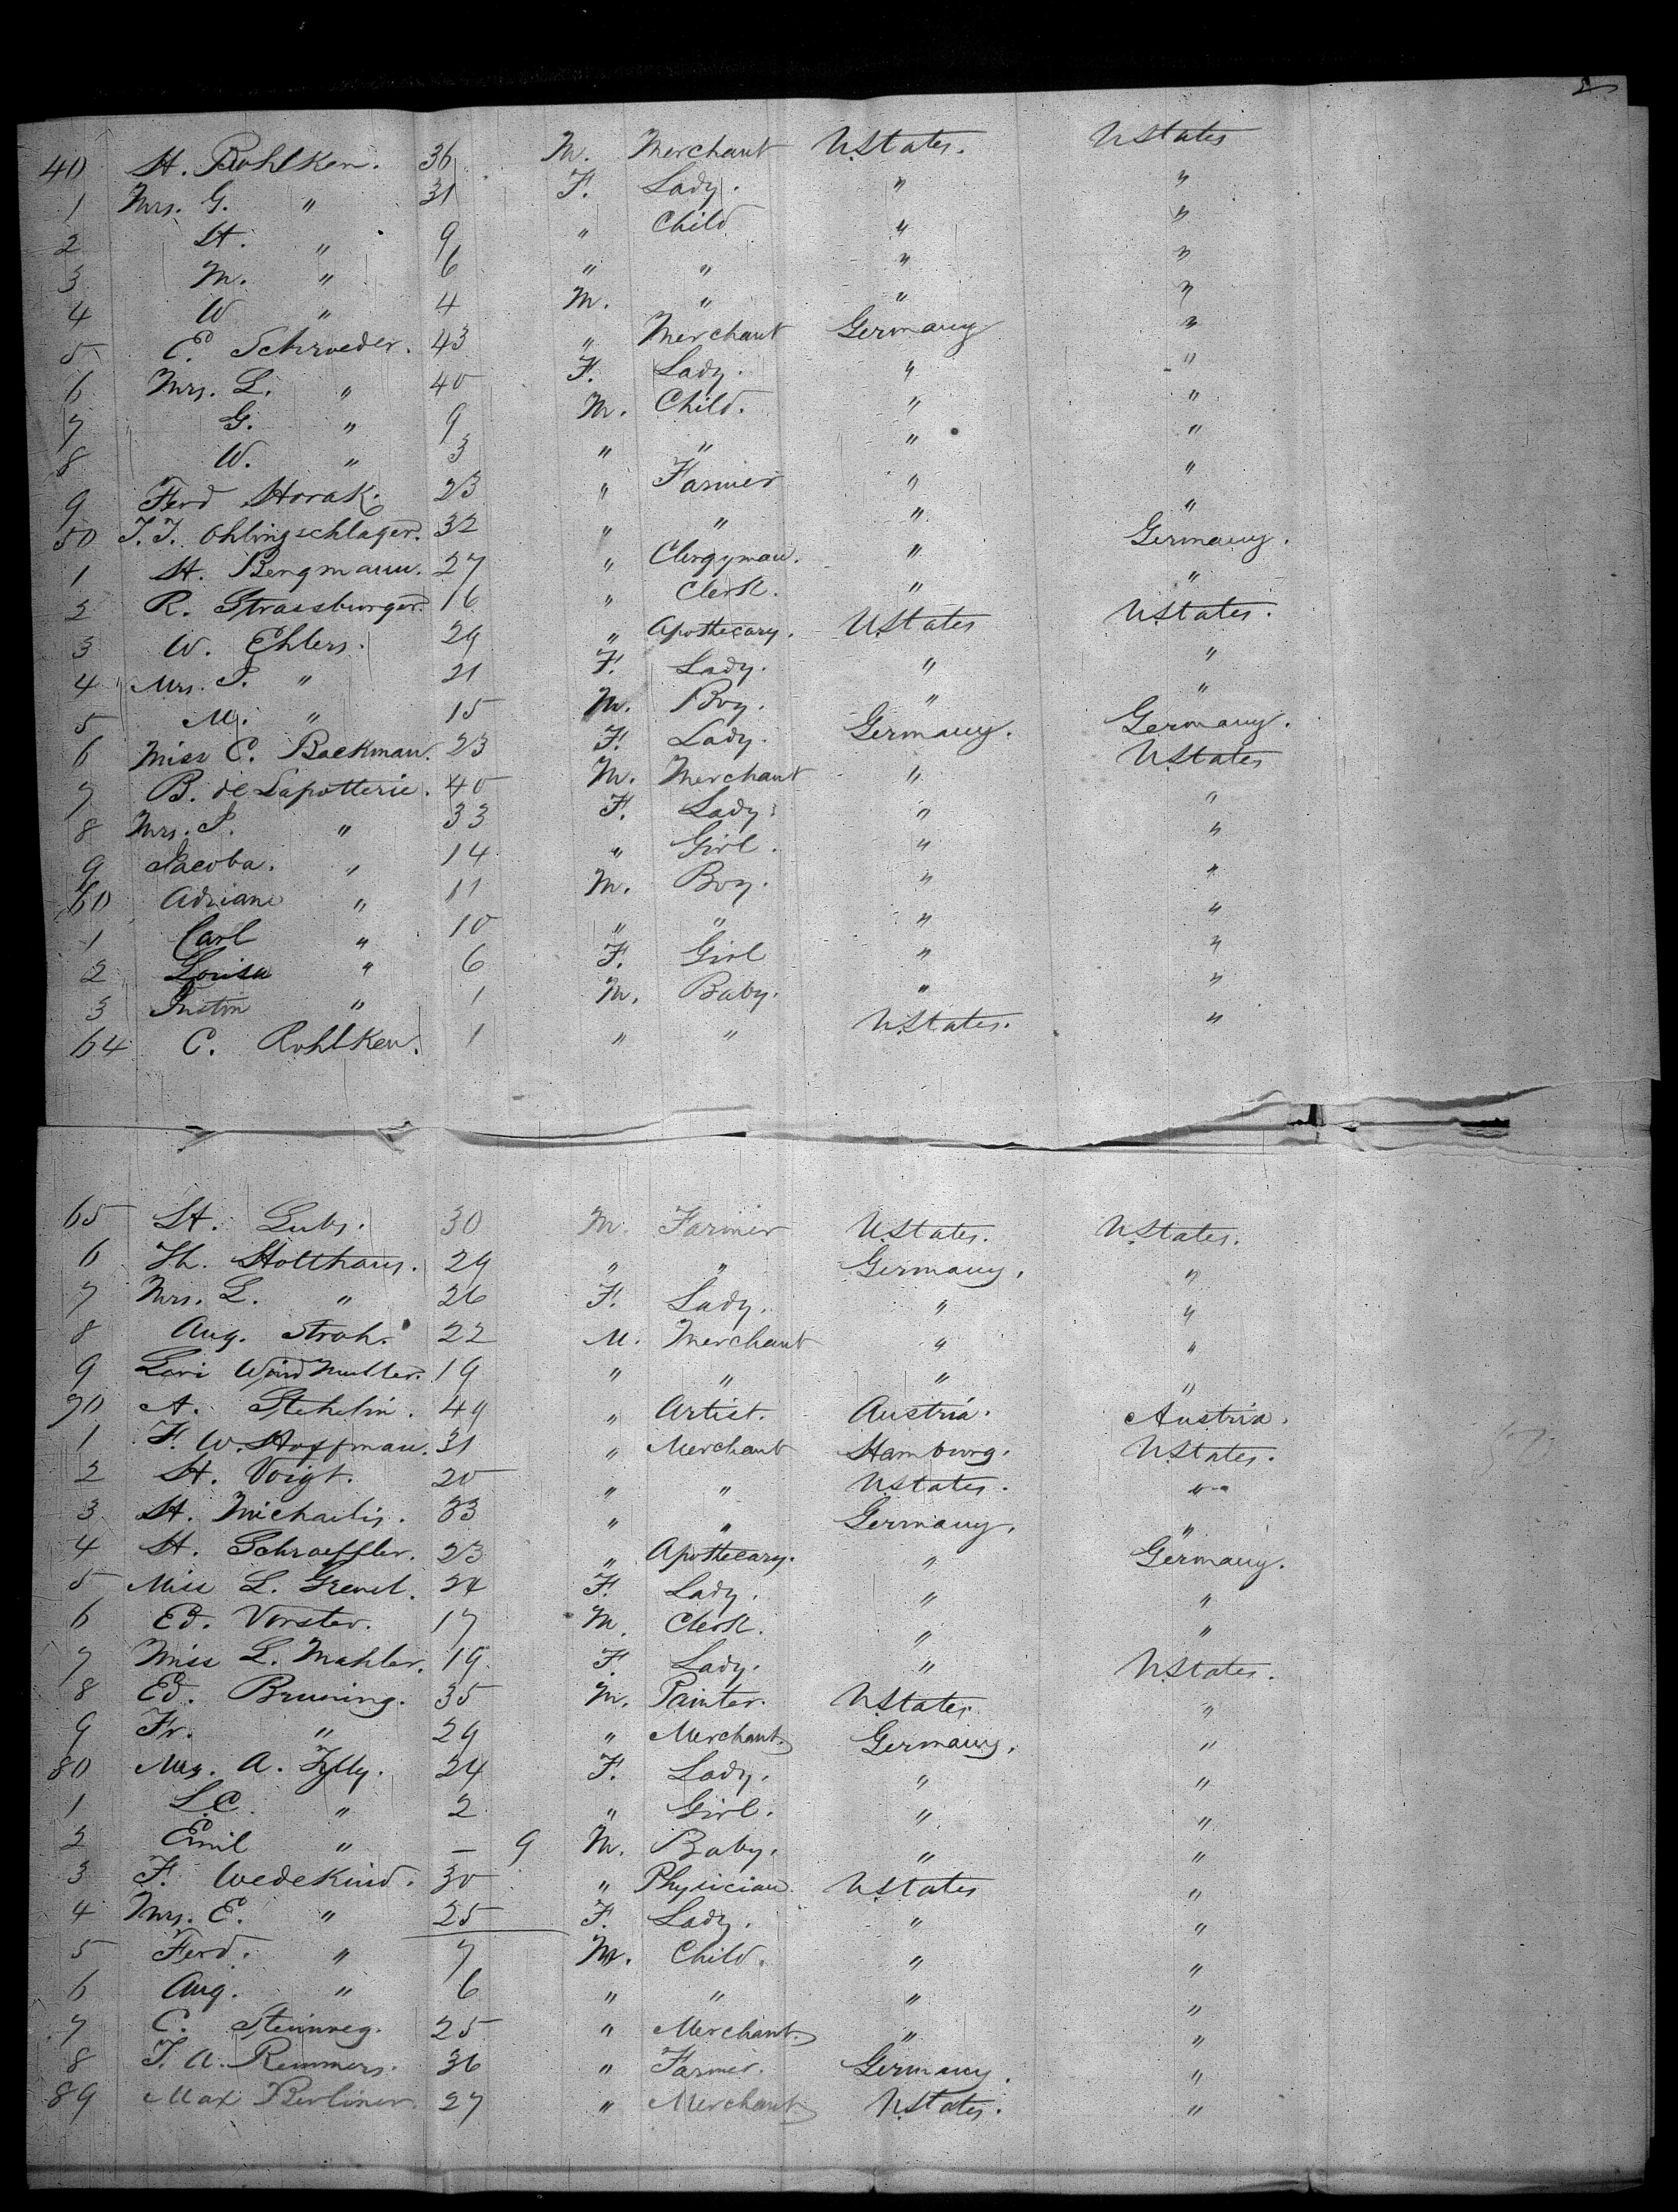 40 H. Rohlken. 36 M. Merchant U.States. U.States
1 Mrs. G. " 31 F. Lady. " "
2 H. " 9 " Child " "
3 M. " 6 " " " "
4 W " 4 M. " " "
5 E. Schroeder. 43 " Merchant Germany "
6 Mrs. L. " 40 F. Lady. " "
7 G. " 9 M. Child. " "
8 W. " 3 " " " "
9 Ferd Horak. 23 " Farmer " "
50 J.J. Ohlingschlager. 32 " " " "
1 H. Bergmann. 27 " Clergyman. " Germany.
2 R. Strassburger. 16 " Clerk. " "
3 W. Ehlers. 29 " Apothecary. U.States U.States.
4 Mrs. J. " 21 F. Lady. " "
5 M. " 15 M. Boy. " "
6 Miss C. Backman. 23 F. Lady. Germany. Germany.
7 B. de Lapotterie. 40 M. Merchant " U.States
8 Mrs. J. " 33 F. Lady. " "
9 Jacoba. " 14 " Girl. " "
60 Adrian " 11 M. Boy. " "
1 Carl " 10 " " " "
2 Louisa " 6 F. Girl " "
3 " 1 M. Baby. " "
64 C. Rohlken. 1 " " U.States. "
65 H. Lubs. 30 M. Farmer U.States. U.States.
6 Th. Holthaus. 29 " " Germany. "
7 Mrs. L. " 26 F. Lady. " "
8 Aug. Stroh. 22 M. Merchant " "
9 Windmuller. 19 " " " "
70 A. Stehelin. 49 " Artist. Austria. Austria.
1 F. W. Hoffman. 31 " Merchant Hamburg. U.States.
2 H. Voigt. 20 " " U.States. "
3 H. Michaelis. 33 " " Germany. "
4 H. Schraeffler. 23 " Apothecary. " Germany.
5 Miss L. 24 F. Lady. " "
6 Ed. Vorster. 17 M. Clerk. " "
7 Miss L. Mahler. 19 F. Lady. " U.States.
8 Ed. Bruning. 35 M. Painter. U.States. "
9 Fr. " 29 " Merchant. Germany. "
80 Mrs. A. 24 F. Lady. " "
1 L.C. " 2 " Girl. " "
2 Emil " — 9 M. Baby. " "
3 F. Wedekind. 30 " Physician. U.States "
4 Mrs. E. " 25 F. Lady. " "
5 Ferd. " 7 M. Child. " "
6 Aug. " 6 " " " "
7 C. Steinweg. 25 " Merchant. " "
8 J. A. Remmers. 36 " Farmer. Germany. "
89 Max Berliner. 27 " Merchant U.States. "